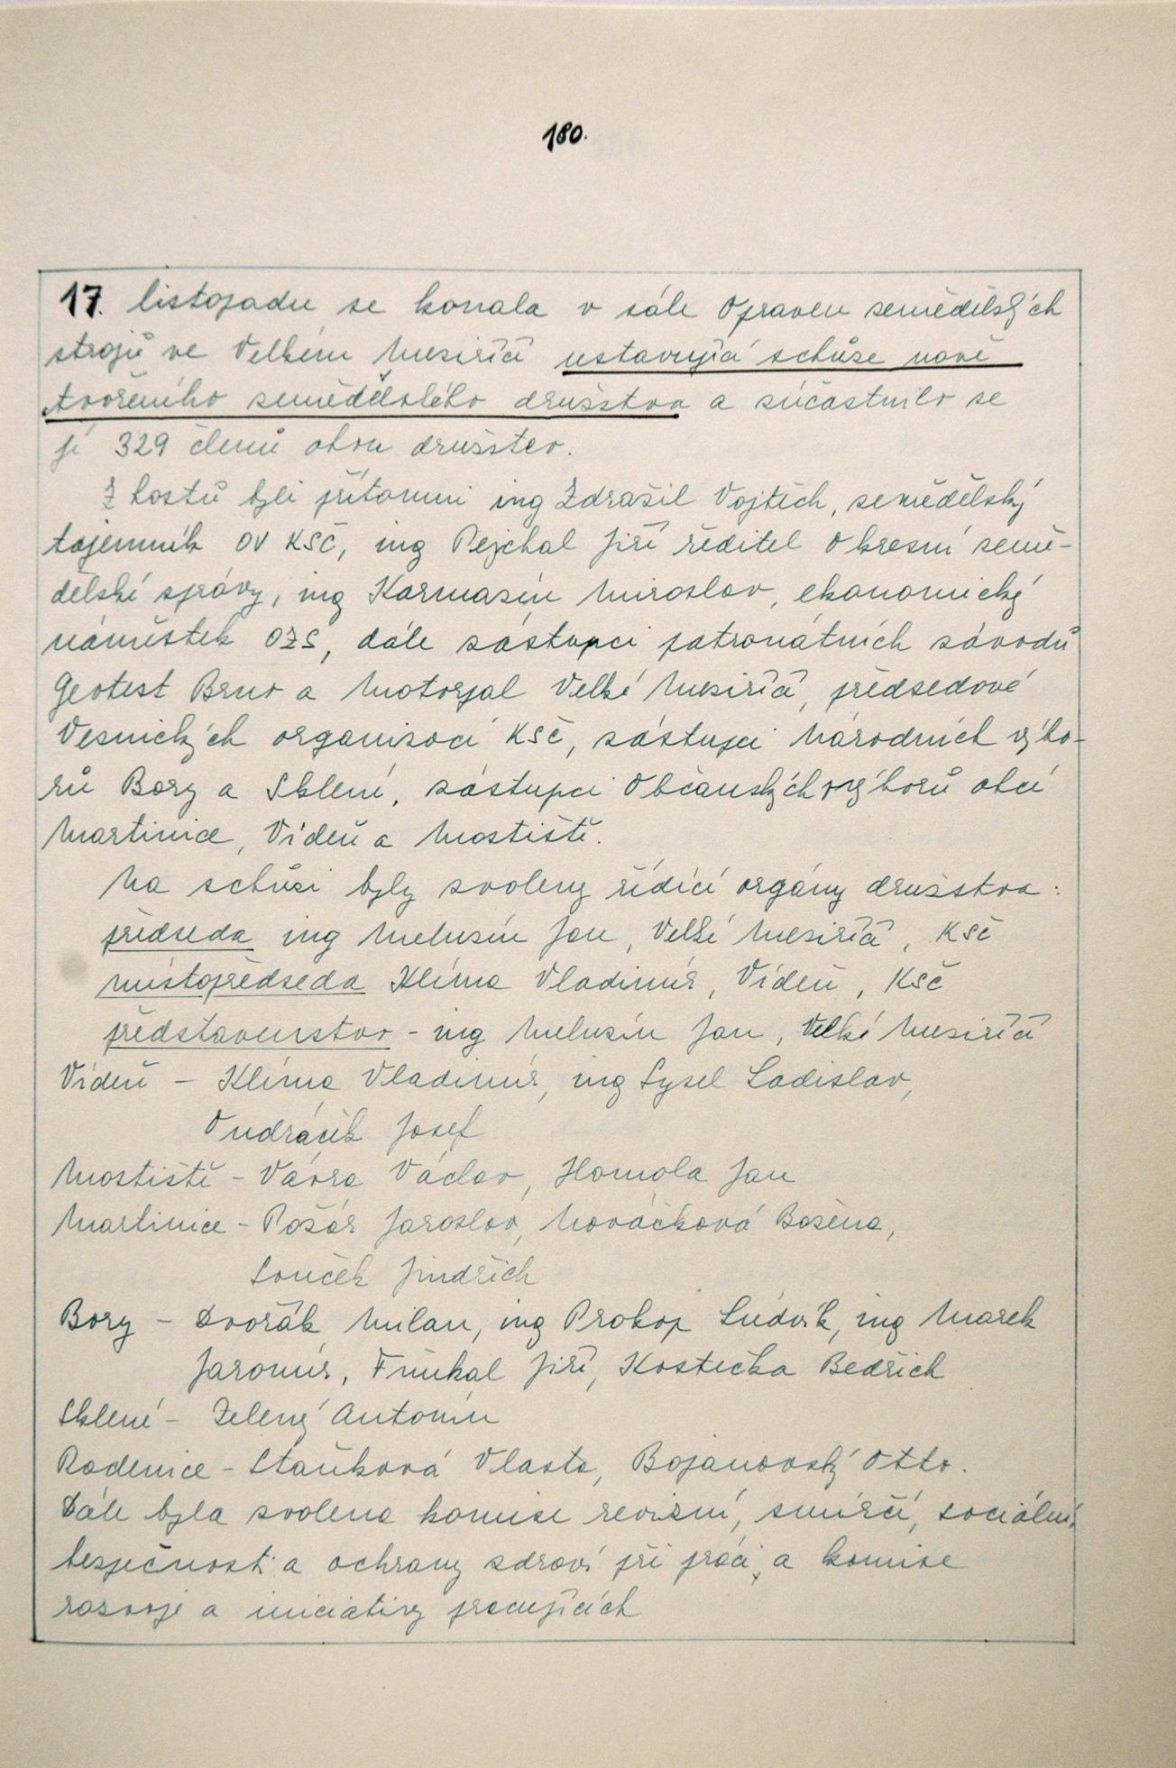 180.
17. listopadu se konala v sále Opraven zemědělských
strojů ve Velkém Meziříčí ustavující schůze nově
tvořeného zemědělského družstva a súčastnilo se
jí 329 členů obou družstev.
Z hostů byli přítomni ing Zdražil Vojtěch, zemědělský
tajemník OV KSČ, ing Pejchal Jiří ředitel Okresní země-
dělské správy, ing Karmasín Miroslav, ekonomický
náměstek OZS, dále zástupci patronátních závodů
Geotest Brno a Motorpal Velké Meziříčí, předsedové
Vesnických organizací KSČ, zástupci Národních výbo-
rů Bory a Sklené, zástupci Občanských výborů obcí
Martinice, Vídeň a Mostiště.
Na schůzi byly zvoleny řídící orgány družstva:
předseda ing Melusín Jan, Velké Meziříčí, KSČ
místopředseda Klíma Vladimír, Vídeň, KSČ
představenstvo - ing Melusín Jan, Velké Meziříčí
Vídeň - Klíma Vladimír, ing Sysel Ladislav,
Ondráček Josef
Mostiště - Vávra Václav, Homola Jan
Martinice - Požár Jaroslav, Nováčková Božena,
Souček Jindřich
Bory - Dvořák Milan, ing Prokop Ludvík, ing Marek
Jaromír, Kostečka Bedřich
Sklené - Zelený Antonín
Radenice - Staňková Vlasta, Bojanovský Otto.
Dále byla zvolena komise revizní, smírčí, sociální,
bezpečnosti a ochrany zdraví při práci, a komise
rozvoje a iniciativy pracujících